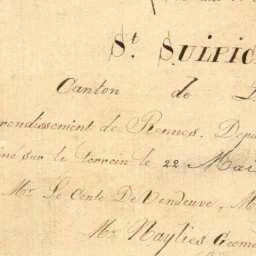 St SULPIC
Canton de
rondissement de Rennes. Depa
iné sur le terrein le 22 Mai
Mr Le Cente De Vendeuve, M
Mr Naylies Geom